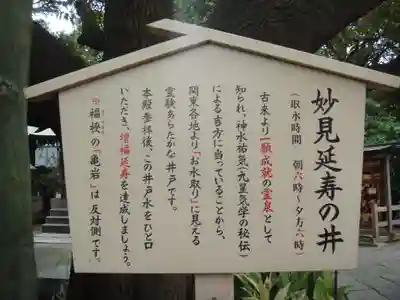 妙見延寿の井
(取水時間 朝六時〜夕方六時)
古来より一願成就の霊泉として
知られ、神水祐気(九星気学の秘伝)
による吉方に当っていることから、
関東各地より「お水取り」に見える
霊験あらたかな井戸です。
本殿参拝後、この井戸水をひと口
いただき、増福延寿を達成しましょう。
※福授の「亀岩」は反対側です。